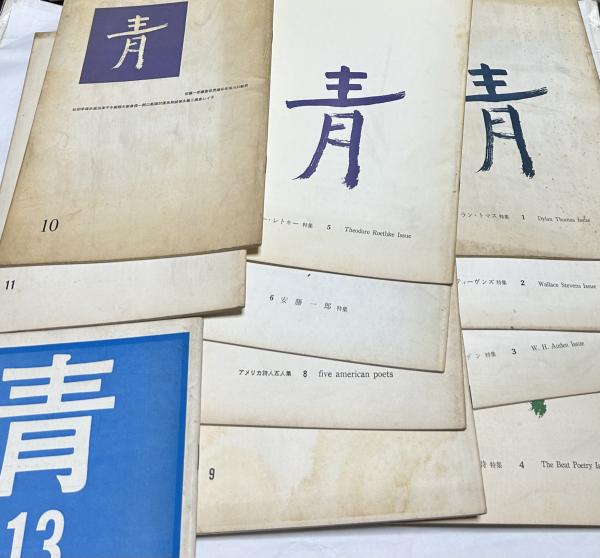 青
10
青
ー・レトキー 特集 5 Theodore Roethke Issue
青
ラン・トマス 特集 1 Dylan Thomas Issue
11
6 安藤一郎 特集
ティーヴンズ 特集 2 Wallace Stevens Issue
アメリカ詩人五人集 8 five american poets
デン 特集 3 W. H. Auden Issue
9
詩 特集 4 The Beat Poetry Is
青
13